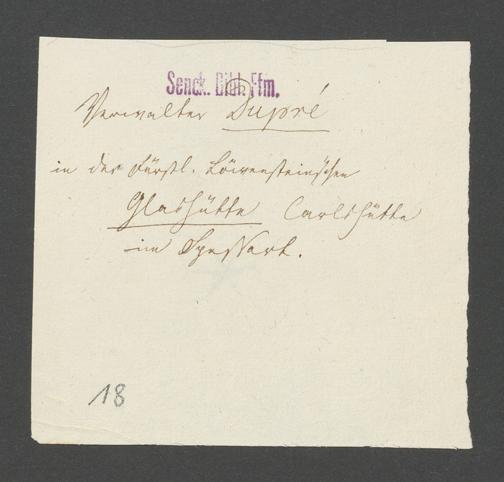 Senck. Bibl. Ffm.
Verwalter Dupré
in der Fürstl. Löwensteinschen
Glashütte Carlshütte
im Spessart.
18